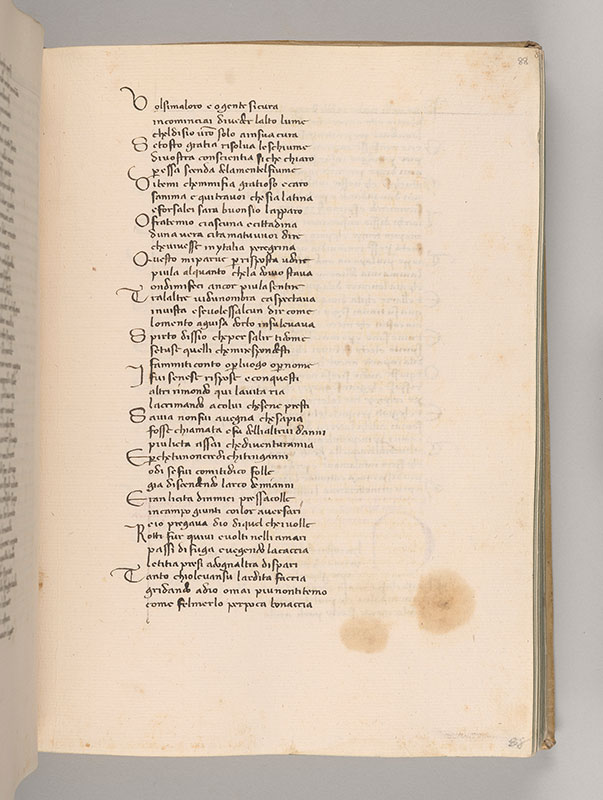 88
Volsimaloro e o gente sicura
incominciai diveder lalto lume
cheldisio vro solo ainsua cura
Setosto gratia risolva leschiume
divostra conscientia si che chiaro
per essa scenda delamentelfiume
Ditemi chemmifia gratioso e caro
sanima e qui travoi che sia latina
e forsalei sara buonsio lapparo
O fratemio ciascuna e cittadina
duna vera citta matuvuoi dire
chevivesse inytalia peregrina
Questo miparve per risposta udire
piula alquanto chela dovio stava
ondimifeci ancor piula sentire
Tralaltre vidunombra caspectava
invista e sevolessalcun dir come
lomento aguisa dorbo insulevava
Spirto dissio cheper salir tidome
setuse quelli chemirispondesti
fammiti conto o per luogo o per nome
Ifui senese rispose e conquesti
altri rimondo qui lavita ria
lacrimando a colui chesene presti
Savia nonfui avegna che sapia
fosse chiamata e fu dellialtrui danni
piu lieta assai chediventuramia
E perchetunoncredichitinganni
odi sefui comitidico folle
gia discendendo larco demianni
Eran licita dimiei pressacolle
incampo giunti coilor aversari
e io pregava dio diquel chei volle
Rotti fur quivi e volti nelli amari
passi di fuga e vegendo la caccia
letitia presi adognaltra dispari
Tanto chiolevansu lardita faccia
gridando adio omai piunontitemo
come felmerlo perpoca bonaccia
88